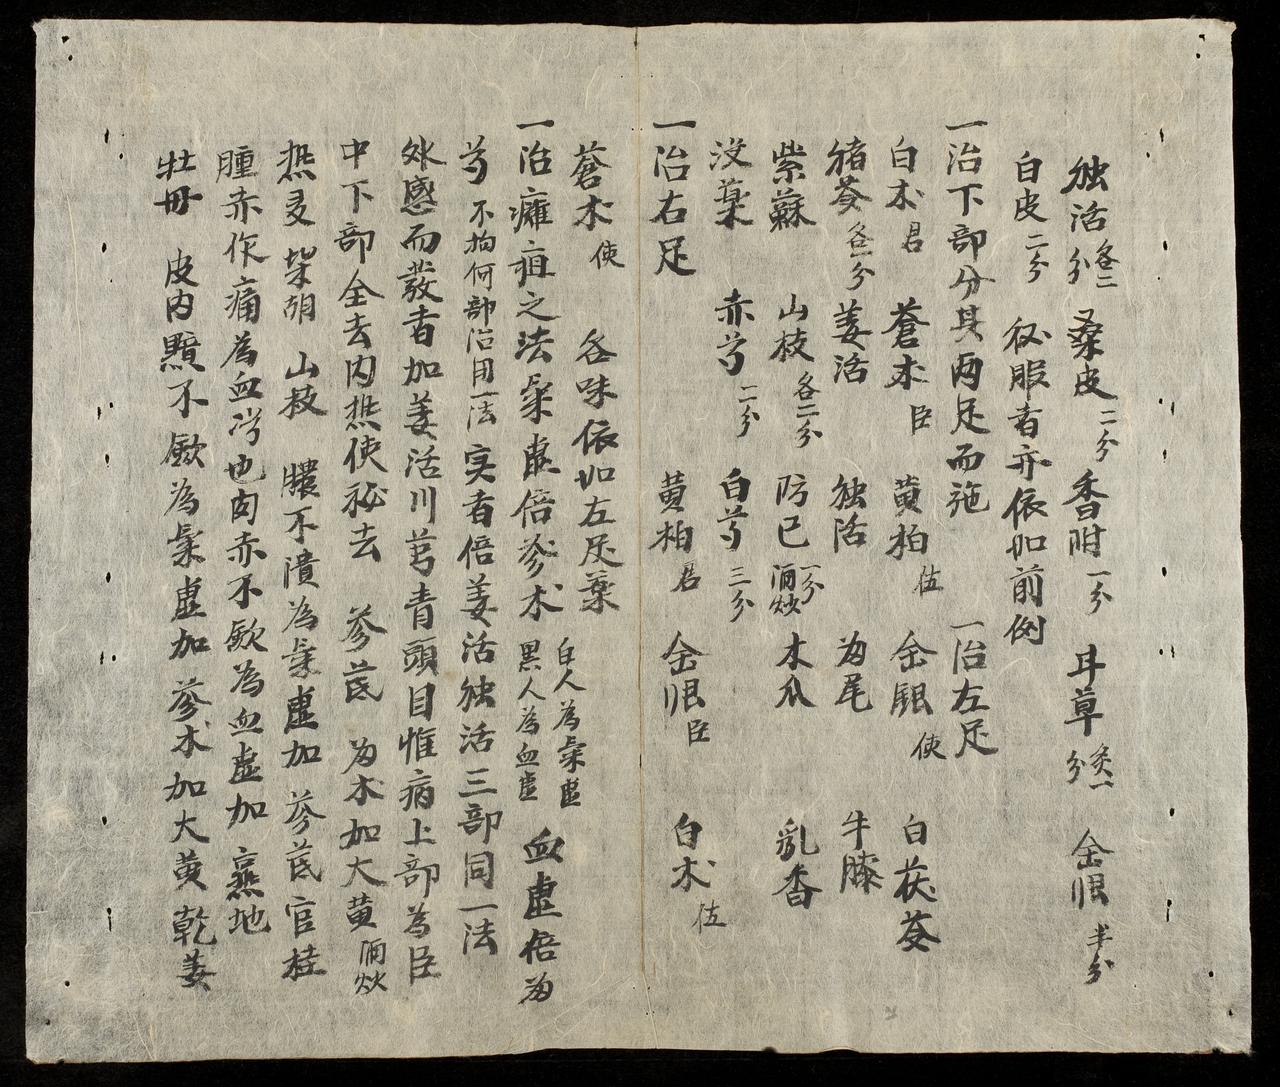 独活各二分 桑皮二分 香附一分 耳草灸一分 金限半分
白皮二分 仅服者亦依如前例
一治下部分其兩足而施 一治左足
白术君 蒼术臣 黄柏佐 金銀使 白茯苓
猪苓各一分 姜活 独活 为尾 牛膝
紫蘇 山枝各二分 防已一分酒炒 木瓜 乳香
没藥 赤芍一分 白芍三分
一治右足 黄柏君 金限臣 白术佐
蒼术使 各味依如左足藥
一治癰疽之法氣虚倍参术白人為氣虚黑人為血虚 血虚倍为
芎不拘何部治用一法实者倍姜活独活三部同一法
外感而發者加姜活川芎青頭目惟病上部為臣
中下部全去内热使秘去 参芪 为术加大黄酒炒
热 柴胡 山枝 膿不潰為氣虚加 参芪官桂
腫赤作痛為血 也肉赤不歛為血虚加 熟地
牡丹 皮内黯不歛為氣虚加 参术加大黄乾姜